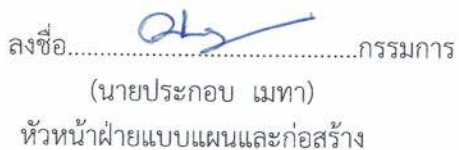 ลงชื่อ............................................กรรมการ
(นายประกอบ เมทา)
หัวหน้าฝ่ายแบบแผนและก่อสร้าง